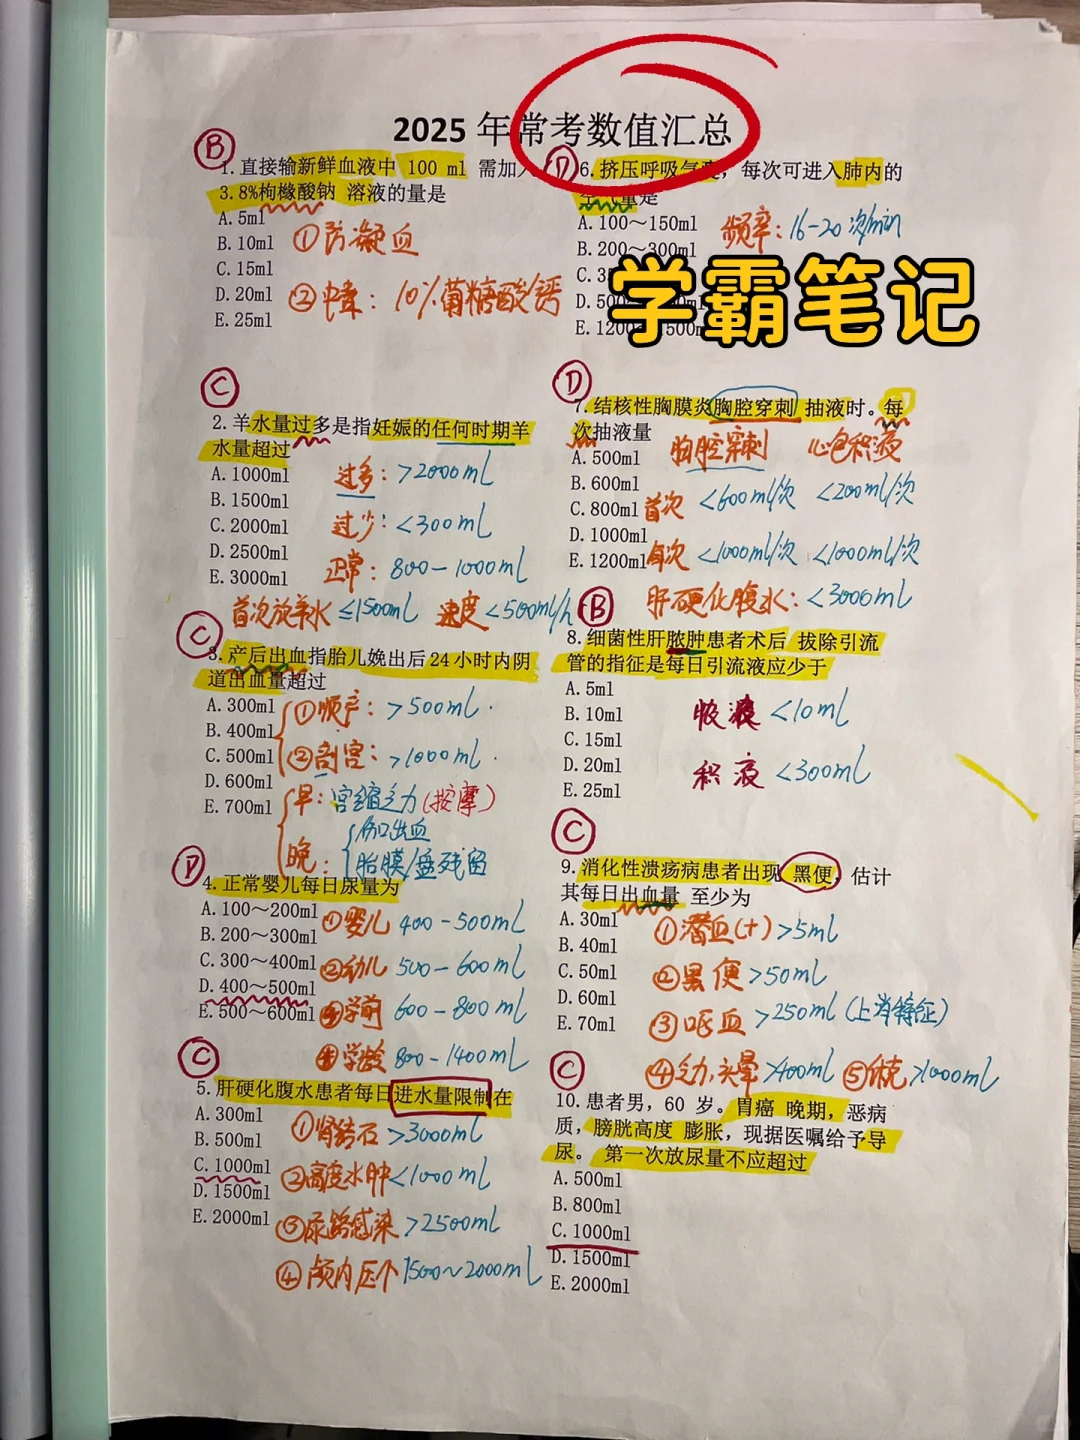 2025 年常考数值汇总
学霸笔记
B
1.直接输新鲜血液中 100 ml 需加入
3.8%枸橼酸钠 溶液的量是
A.5ml
B.10ml ①防凝血
C.15ml
D.20ml ②中毒：10%葡糖酸钙
E.25ml
C
2.羊水量过多是指妊娠的任何时期羊
水量超过
A.1000ml 过多：>2000ml
B.1500ml
C.2000ml 过少：<300ml
D.2500ml
E.3000ml 正常：800-1000ml
首次放羊水 ≤1500ml 速度<500ml/h
C
3.产后出血指胎儿娩出后 24 小时内阴
道出血量超过
A.300ml ①顺产：>500ml
B.400ml
C.500ml ②剖宫：>1000ml
D.600ml
E.700ml 早：宫缩乏力(按摩)
晚：伤口出血
胎膜/盘残留
D
4.正常婴儿每日尿量为
A.100～200ml ①婴儿 400-500ml
B.200～300ml
C.300～400ml ②幼儿 500-600ml
D.400～500ml
E.500～600ml ③学前 600-800ml
④学龄 800-1400ml
C
5.肝硬化腹水患者每日进水量限制在
A.300ml ①肾结石>3000ml
B.500ml
C.1000ml ②高度水肿<1000ml
D.1500ml
E.2000ml ③尿路感染>2500ml
④颅内压个 1500~2000ml
D
6.挤压呼吸气囊，每次可进入肺内的
空气量是
A.100～150ml 频率：16-20次/min
B.200～300ml
C.
D.500
E.1200 500
D
7.结核性胸膜炎胸腔穿刺 抽液时。每
次抽液量
A.500ml 胸腔穿刺 心包积液
B.600ml
C.800ml 首次 <600ml/次 <200ml/次
D.1000ml
E.1200ml 每次 <1000ml/次 <1000ml/次
肝硬化腹水：<3000ml
B
8.细菌性肝脓肿患者术后 拔除引流
管的指征是每日引流液应少于
A.5ml
B.10ml 脓液 <10ml
C.15ml
D.20ml 积液 <300ml
E.25ml
C
9.消化性溃疡病患者出现 黑便，估计
其每日出血量 至少为
A.30ml ①潜血(+)>5ml
B.40ml
C.50ml ②黑便>50ml
D.60ml
E.70ml ③呕血>250ml(上消特征)
④乏力,头晕>400ml ⑤休克>1000ml
C
10.患者男，60 岁。胃癌 晚期，恶病
质，膀胱高度 膨胀，现据医嘱给予导
尿。 第一次放尿量不应超过
A.500ml
B.800ml
C.1000ml
D.1500ml
E.2000ml